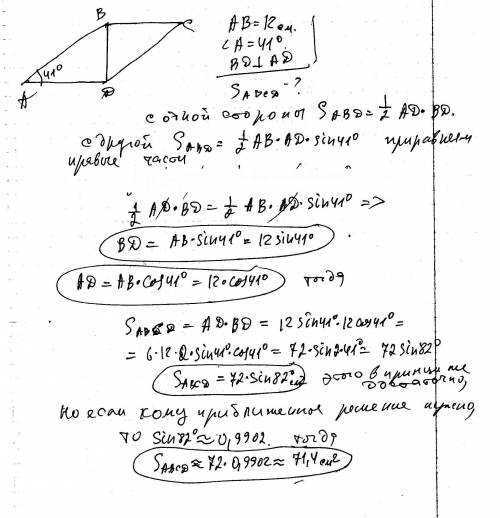 B C
41°
A D
AB = 12 см.
∠A = 41°
BD ⊥ AD
S ABCD - ?
с одной стороны S ABD = 1/2 AD · BD.
с другой S ABD = 1/2 AB · AD · sin 41° приравняем
правые части
1/2 AD · BD = 1/2 AB · AD · sin 41° =>
BD = AB · sin 41° = 12 sin 41°
AD = AB · cos 41° = 12 · cos 41° тогда
S ABCD = AD · BD = 12 sin 41° · 12 cos 41° =
= 6 · 12 · 2 · sin 41° · cos 41° = 72 · sin 2 · 41° = 72 sin 82°
S ABCD = 72 · sin 82° см² этого в принципе
достаточно,
Но если кому приближенное решение нужно,
то sin 82° ≈ 0,9902. тогда
S ABCD ≈ 72 · 0,9902 ≈ 71,4 см²